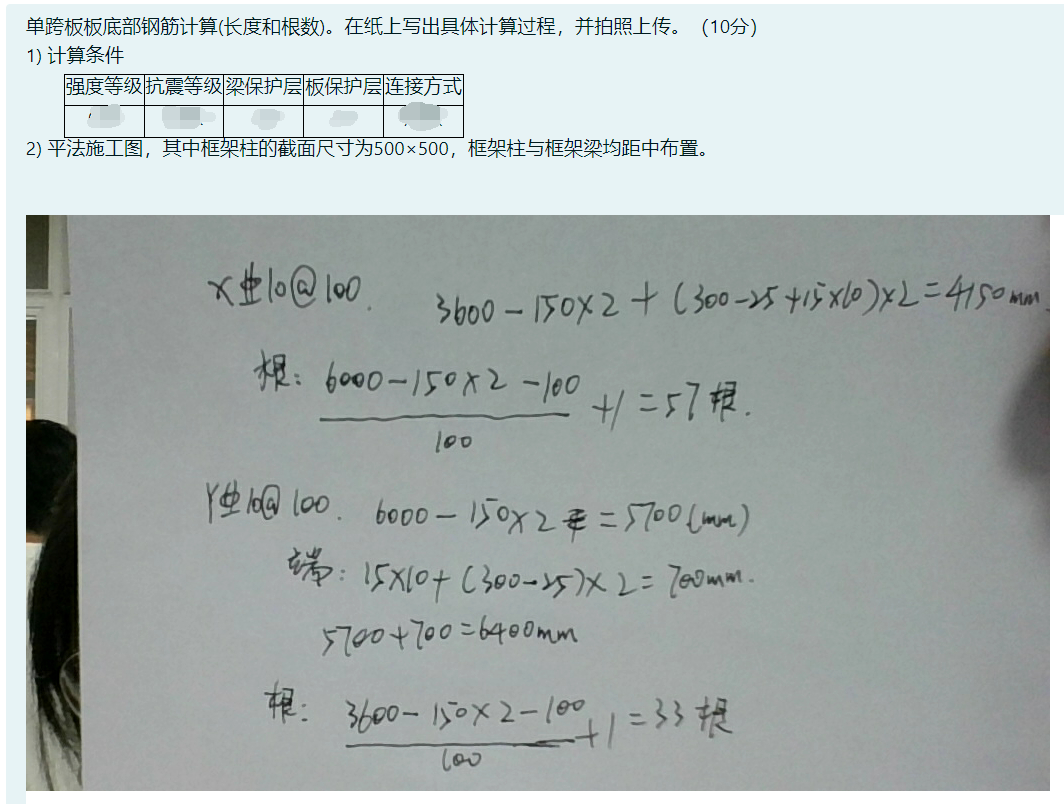 单跨板板底部钢筋计算(长度和根数)。在纸上写出具体计算过程，并拍照上传。（10分）
1) 计算条件
强度等级 抗震等级 梁保护层 板保护层 连接方式
2) 平法施工图，其中框架柱的截面尺寸为500×500，框架柱与框架梁均距中布置。
X 10@100. 3600-150×2+(300-25+15×10)×2=4150mm.
根: 6000-150×2-100
100
+1=57根.
Y 10@100. 6000-150×2=5700(mm)
端: 15×10+(300-25)×2=700mm.
5700+700=6400mm
根: 3600-150×2-100
100
+1=33根